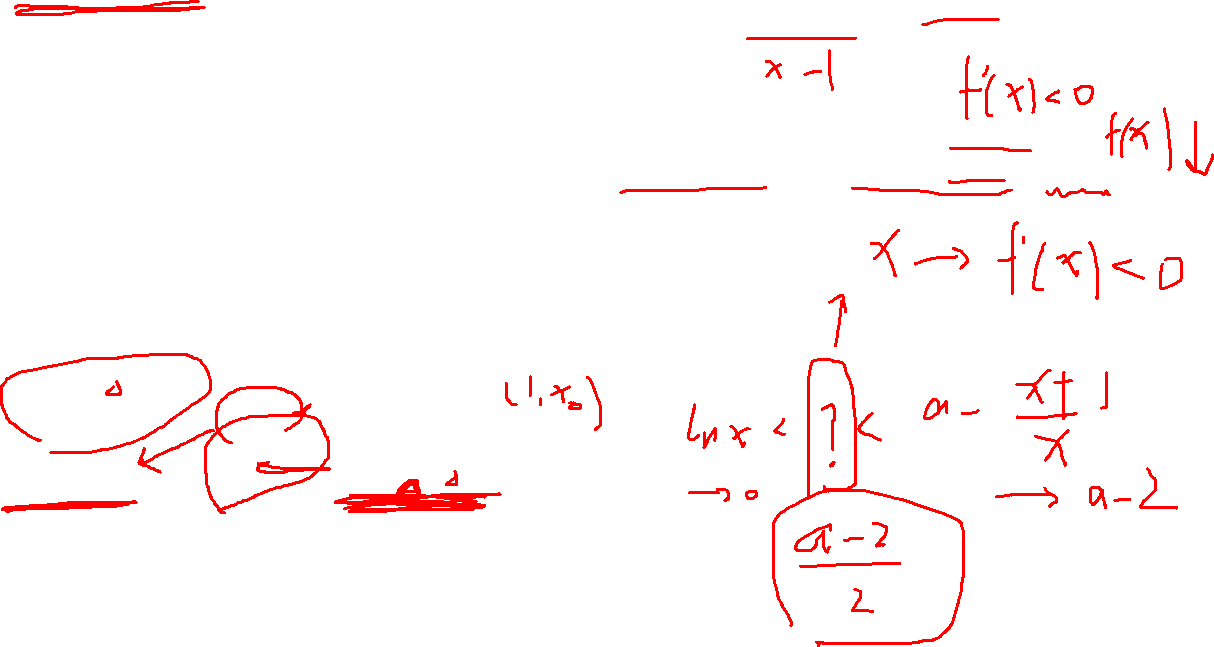 x-1
f'(x)<0
f(x)↓
x → f'(x)<0
(1,x₀) ln x < ? < a - (x+1)/x
→0 → a-2
(a-2)/2